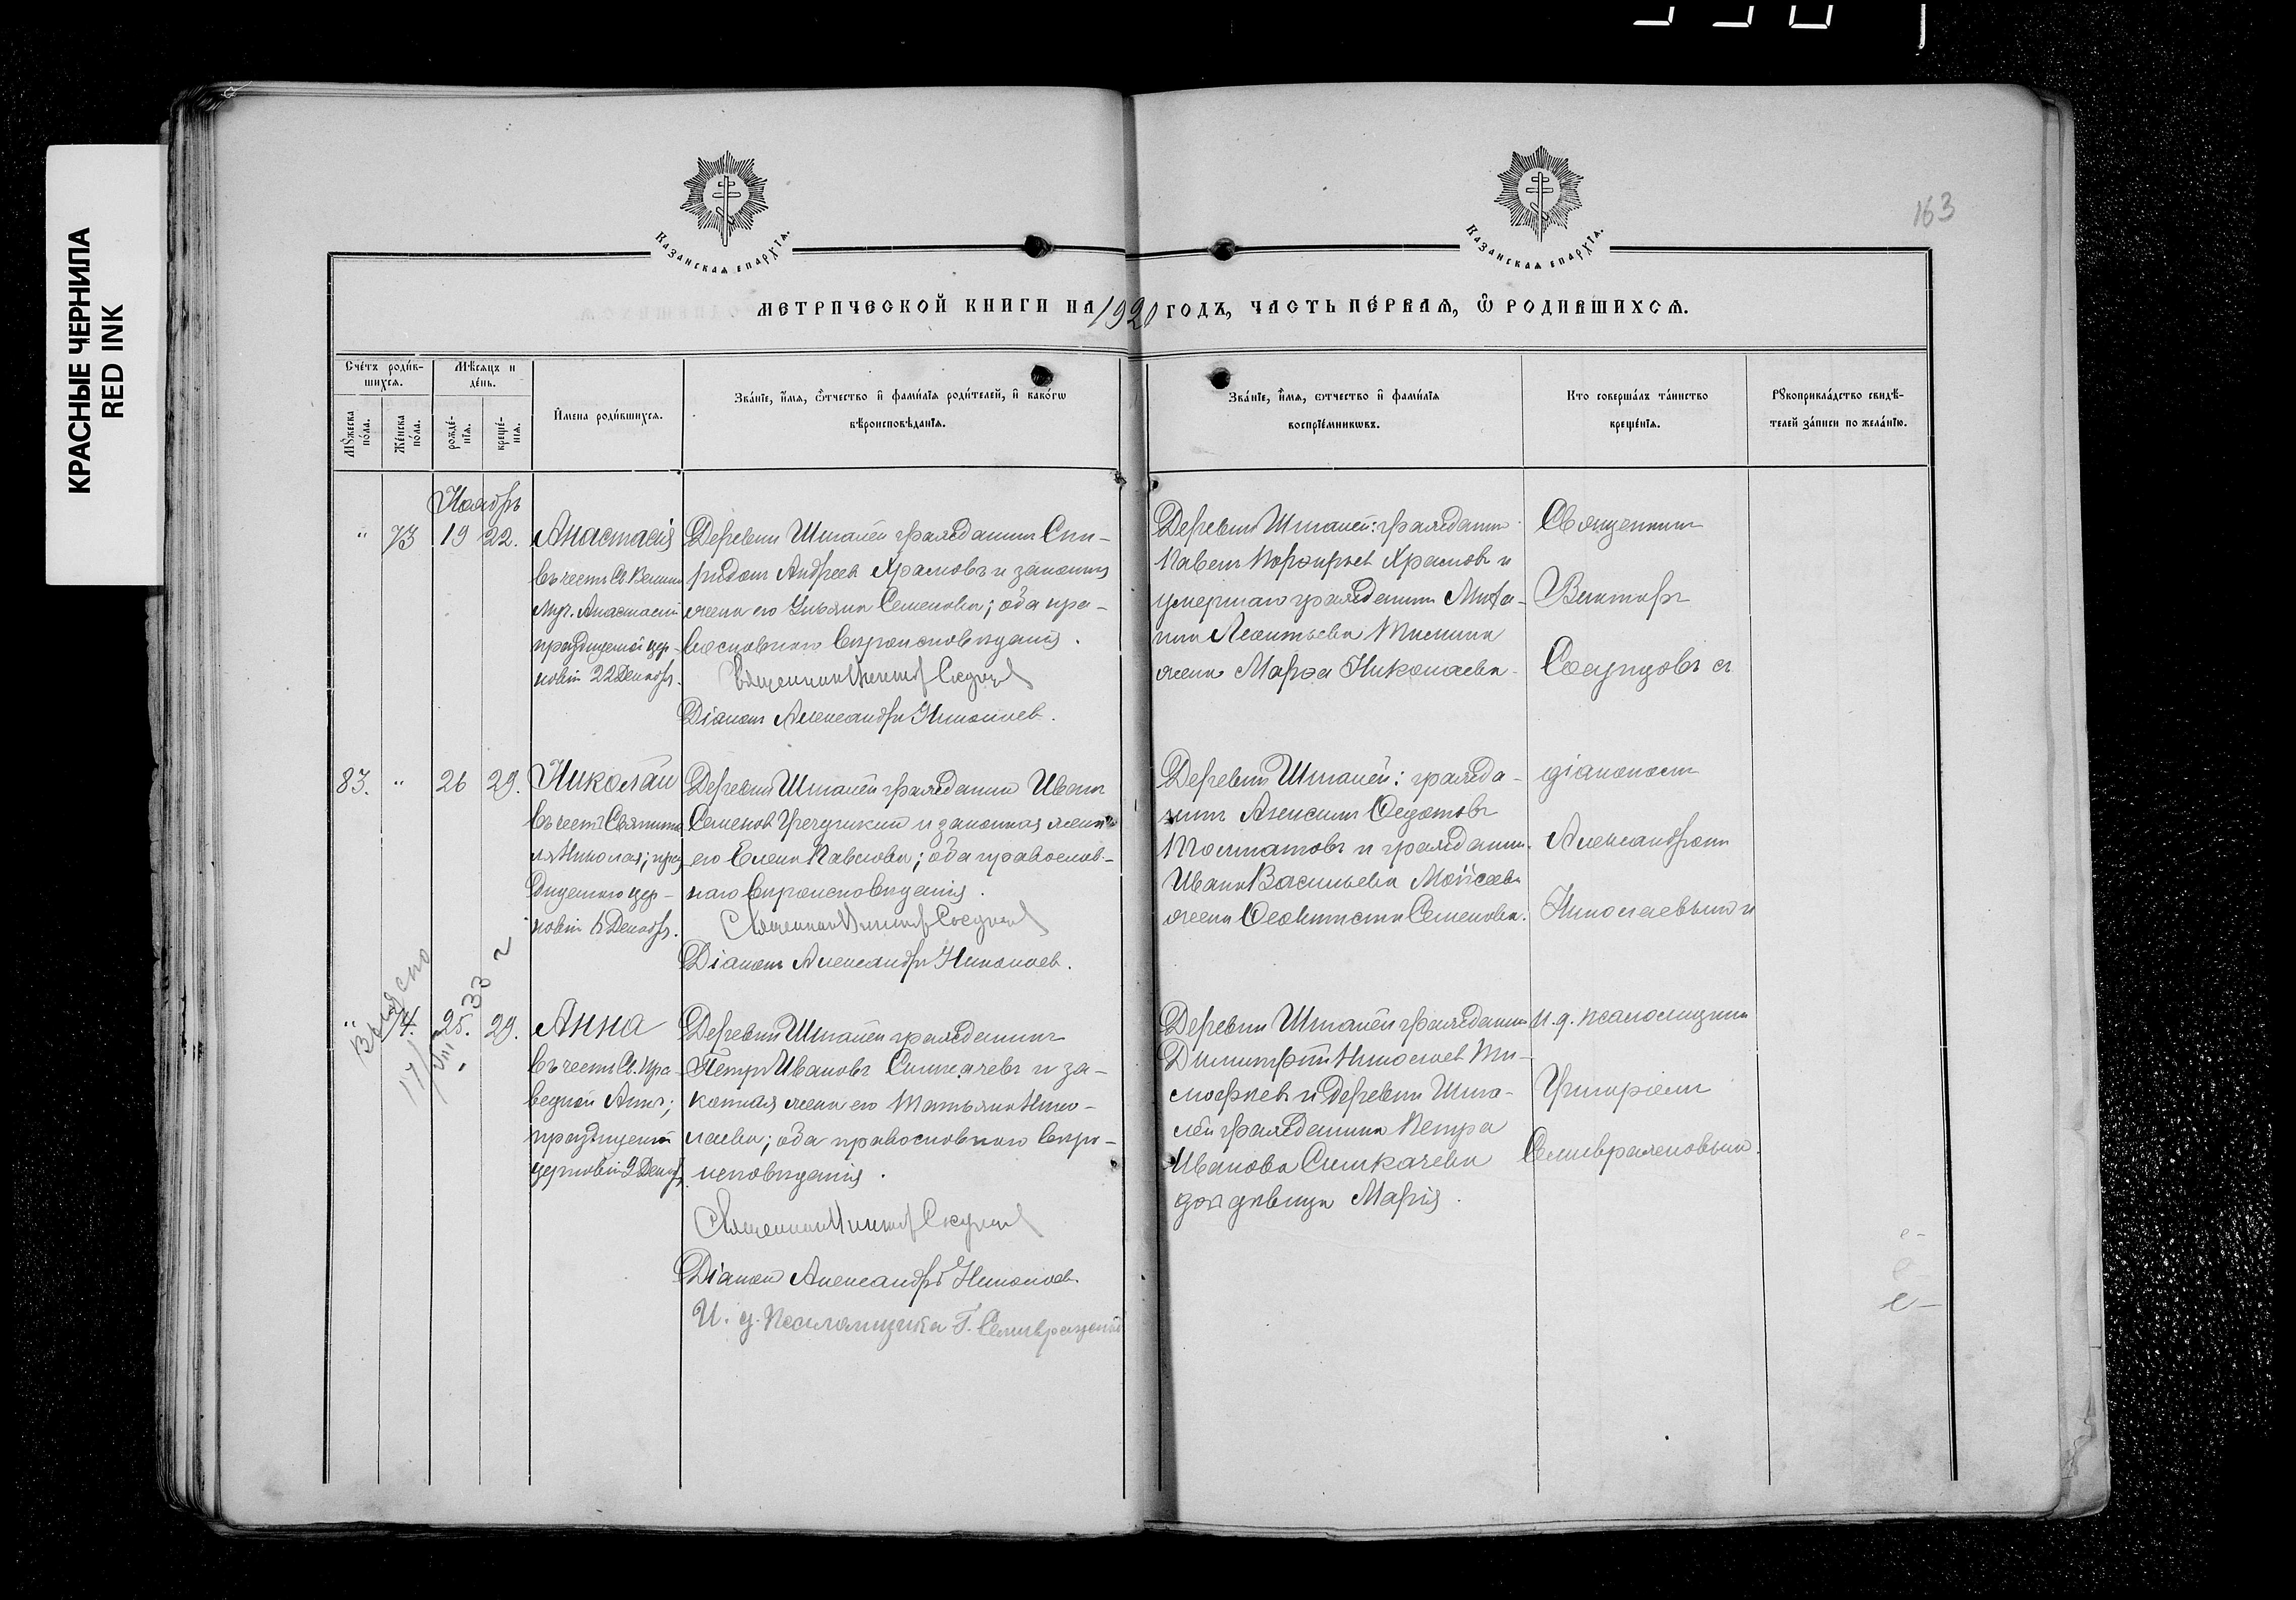 КРАСНЫЕ ЧЕРНИЛА
RED INK
163
Казанская епархїя.
Казанская епархїя.
МЕТРИЧЕСКОЙ КНИГИ НА 1920 ГОДЪ, ЧАСТЬ ПЕ́РВАЯ, Ѽ РОДИВШИХСЯ.
Сче́тъ роди́в-
шихся.
Мѣсяцъ и
де́нь.
Мꙋжеска
по́ла.
Же́нска
по́ла.
рожде́-
нїя.
креще́-
нїя.
И҆мена роди́вшихся.
Зва́нїе, и҆́мя, ѻ҆́тчество и҆ фами́лїя роди́телей, и҆ како́гѡ
вѣроисповѣ́данїя.
Зва́нїе, и҆́мя, ѻ҆́тчество и҆ фами́лїя
воспрїе́мникѡвъ.
Кто соверша́лъ та́инство
креще́нїя.
Рꙋкоприкла́дство свидѣ́-
телей за́писи по жела́нїю.
Ноябрь
" 73 19 22.
Анастасія
въ честь Св. Велик
Муч. Анастасіи
празднуемой цер-
ковію 22 Декабр.
Деревни Шталей гражданинъ Спи-
ридонъ Андреевъ Храмовъ и законная
жена его Ульяна Семенова; оба пра-
вославнаго вѣроисповѣданія.
Священникъ Викторъ
Діаконъ Александръ Николаев.
Деревни Шталей: гражданинъ
Павелъ Порфирьев Храмовъ и
умершаго гражданина
Леонтьева
жена Марфа Николаева.
Священникъ
Викторъ
съ
83. " 26 29.
Николай
въ честь Святите
ля Николая; праз
днуемаго цер-
ковію 6 Декабр.
Деревни Шталей гражданинъ Иванъ
Семенов и законная жена
его Елена Павлова; оба православ-
наго вѣроисповѣданія.
Священникъ Викторъ
Діаконъ Александръ Николаев.
Деревни Шталей: гражда-
нинъ Алексѣй Ѳедотовъ
и гражданина
Ивана Васильева Мойсеева
жена Ѳеоктиста Семенова.
діакономъ
Александромъ
Николаевымъ и
Выдано
17/VIII 33 г
" 74. 25. 29.
Анна
въ честь Св. Пра-
ведной Анны;
празднуемой
церковію 9 Декабр.
Деревни Шталей гражданинъ
Петръ Ивановъ Симкачевъ и за-
конная жена его Татьяна Нико-
лаева; оба православнаго вѣро-
исповѣданія.
Священникъ Викторъ
Діаконъ Александръ Николаев.
И. д. Псаломщика Г. Селивразкой
Деревни Шталей гражданинъ
Димитрій Николаев Ти-
мофеевъ и деревни Шта-
лей гражданина Петра
Иванова Симкачева
дочь дѣвица Марія.
И. д. псаломщика